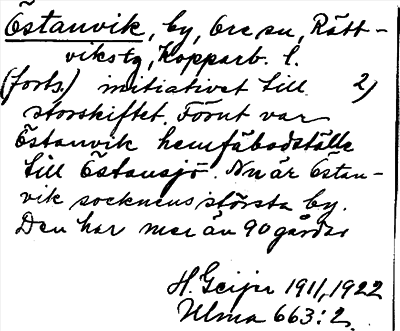 Östanvik, by, Ore sn, Rätt-
viks tg, Kopparb. l.
(forts.) initiativet till 2)
storskiftet. Förut var
Östanvik hemfäbodställe
till Östansjö. Nu är Östan-
vik socknens största by.
Den har mer än 90 gårdar
H. Geijer 1911, 1922
Ulma 663:2.